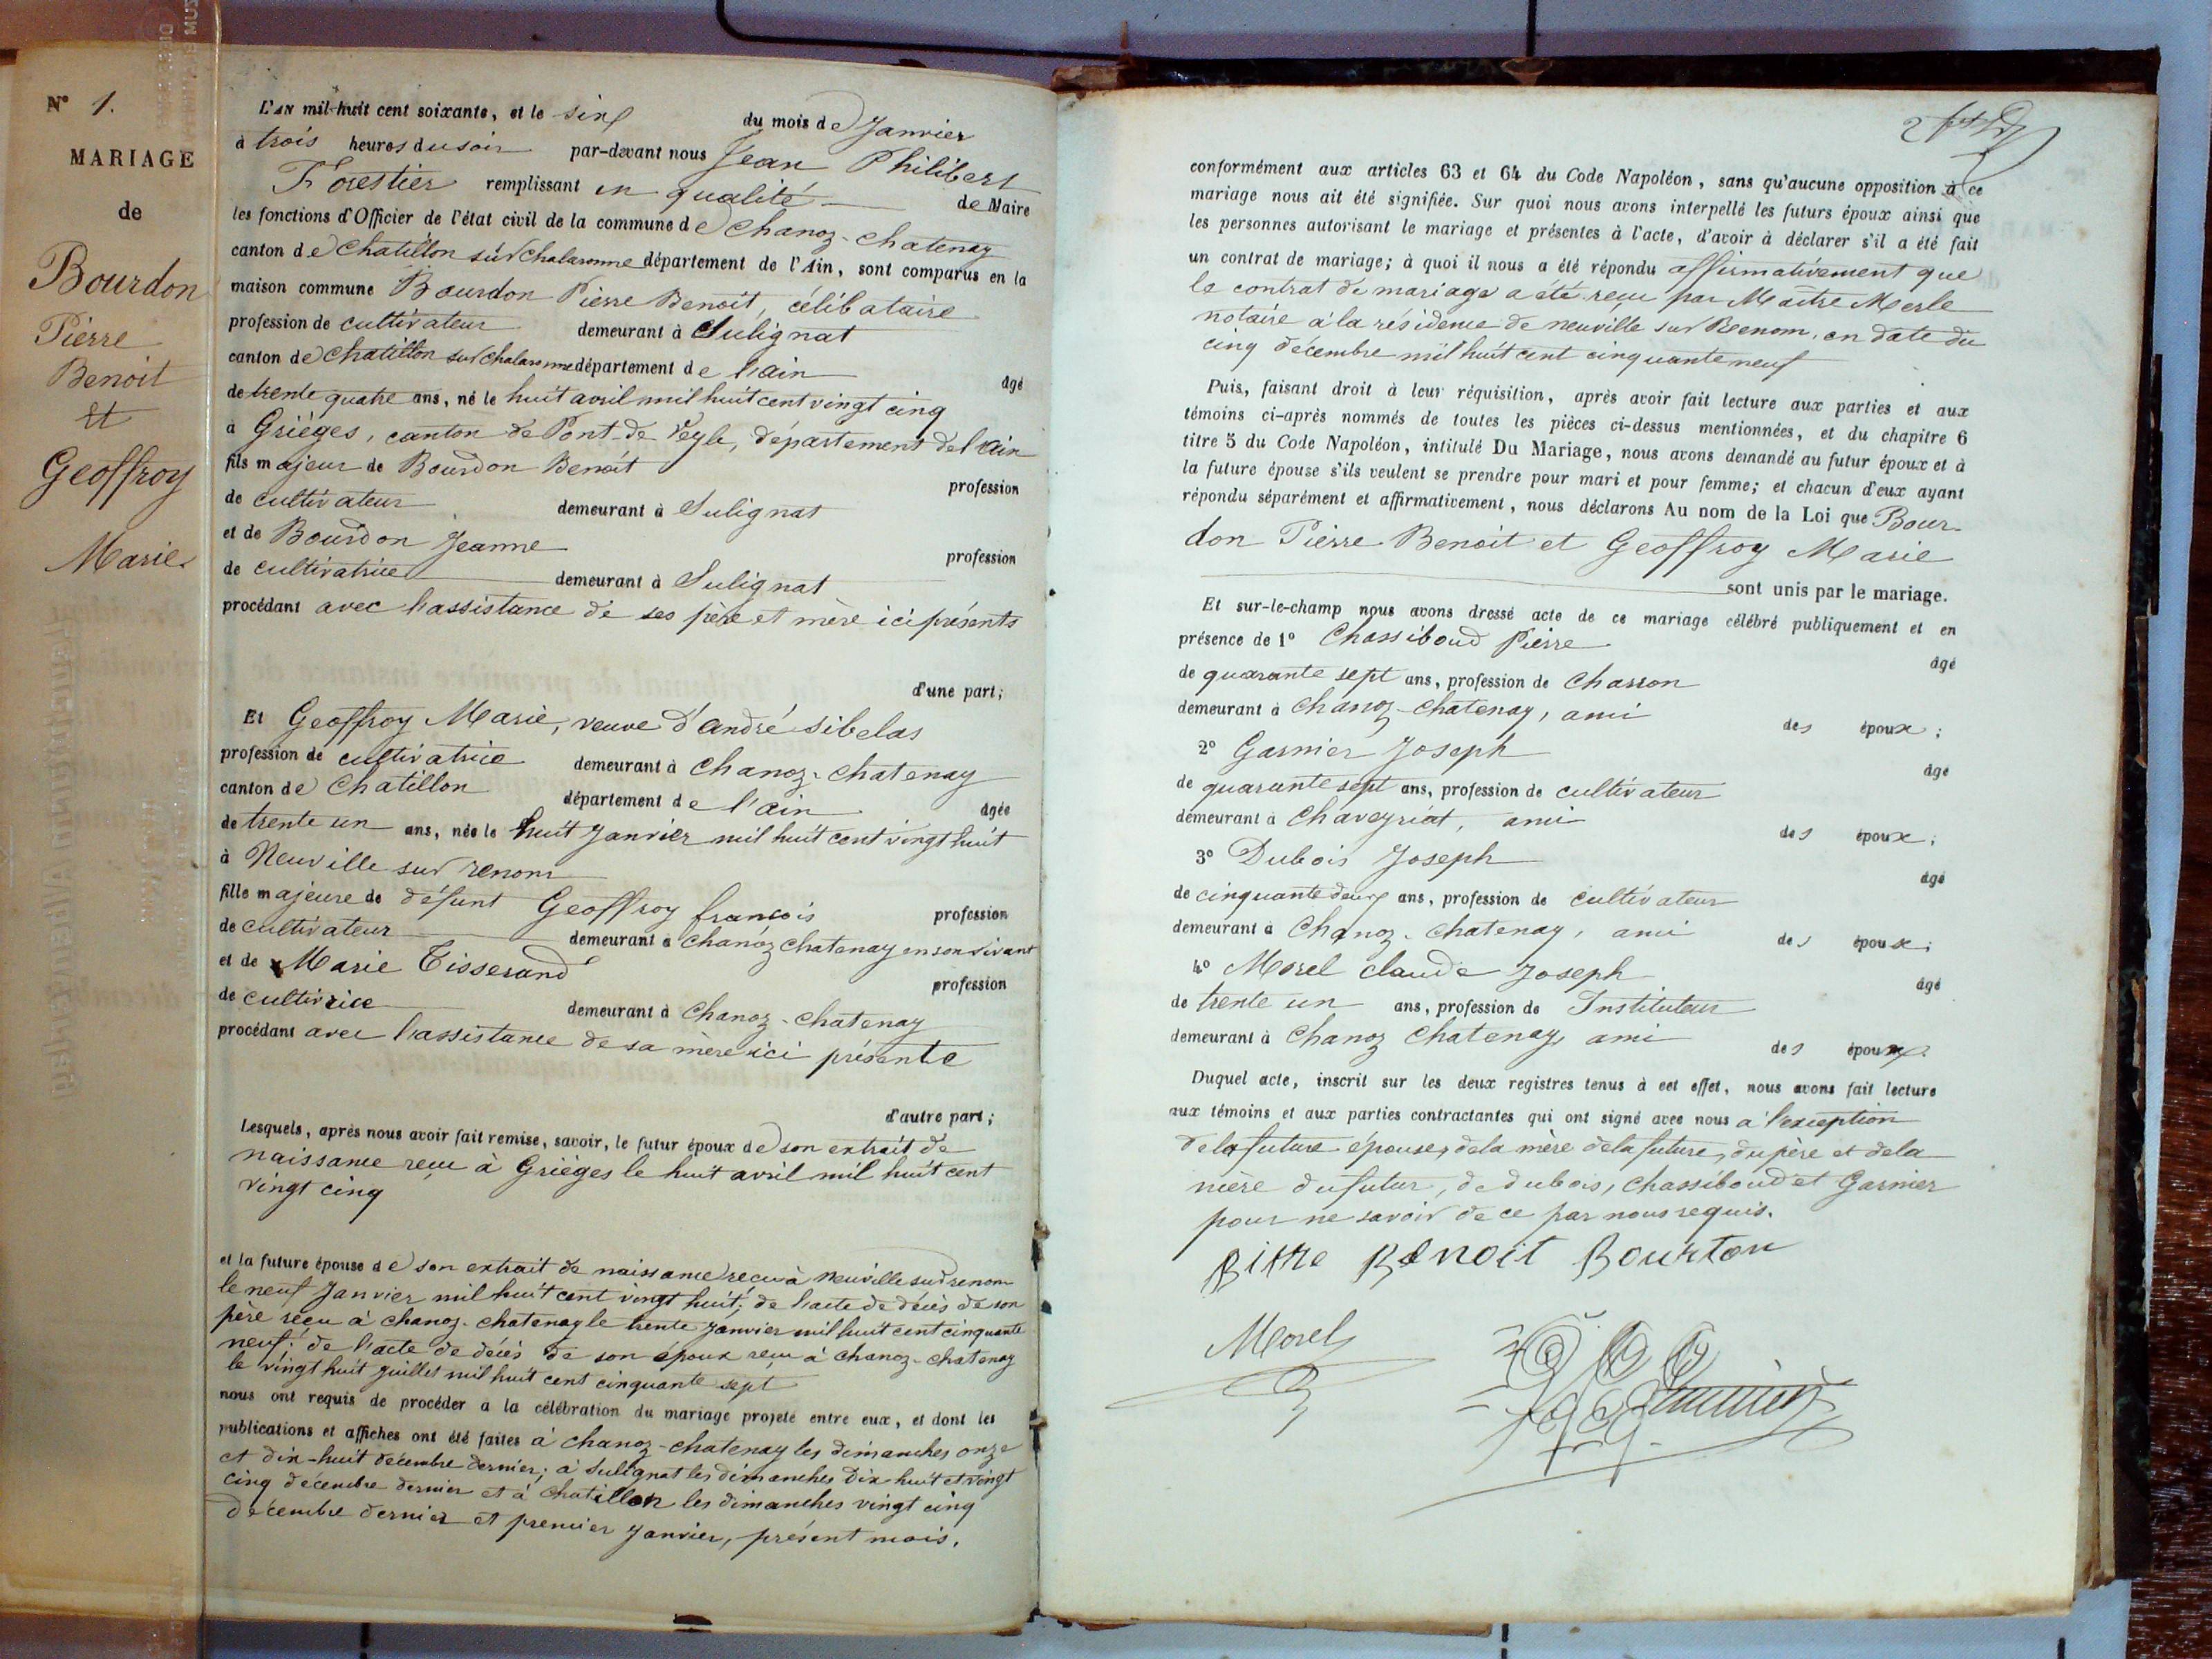 N° 1.
MARIAGE
de
Bourdon
Pierre
Benoit
et
Geoffroy
Marie
L'AN mil-huit cent soixante, et le six du mois de Janvier
à trois heures du soir par-devant nous Jean Philibert
Forestier remplissant en qualité de Maire
les fonctions d'Officier de l'état civil de la commune de Chanoz-Chatenay
canton de Chatillon sur Chalaronne département de l'Ain, sont comparus en la
maison commune Bourdon Pierre Benoit, célibataire
profession de cultivateur demeurant à Sulignat
canton de Chatillon sur Chalaronne département de l'ain âgé
de trente quatre ans, né le huit avril mil huit cent vingt cinq
à Grièges, canton de Pont-de-Veyle, département de l'ain
fils majeur de Bourdon Benoit profession
de cultivateur demeurant à Sulignat
et de Bourdon Jeanne profession
de cultivatrice demeurant à Sulignat
procédant avec l'assistance de ses père et mère ici présents
d'une part;
Et Geoffroy Marie, veuve d'andré Sibelas
profession de cultivatrice demeurant à Chanoz-Chatenay
canton de Chatillon département de l'ain âgée
de trente un ans, née le huit Janvier mil huit cent vingt huit
à Neuville sur renom
fille majeure de défunt Geoffroy françois profession
de cultivateur demeurant à Chanoz Chatenay en son vivant
et de Marie Tisserand profession
de cultivrice demeurant à Chanoz-Chatenay
procédant avec l'assistance de sa mère ici présente
d'autre part;
Lesquels, après nous avoir fait remise, savoir, le futur époux de son extrait de
naissance reçu à Grièges le huit avril mil huit cent
vingt cinq
et la future épouse de son extrait de naissance reçu à Neuville sur renom
le neuf Janvier mil huit cent vingt huit; de l'acte de décès de son
père reçu à chanoz-chatenay le trente Janvier mil huit cent cinquante
neuf; de l'acte de décès de son époux reçu à Chanoz-Chatenay
le vingt huit juillet mil huit cent cinquante sept
nous ont requis de procéder à la célébration du mariage projeté entre eux, et dont les
publications et affiches ont été faites à chanoz-chatenay les dimanches onze
et dix-huit décembre dernier; à Sulignat les dimanches dix huit et vingt
cinq décembre dernier et à Chatillon les dimanches vingt cinq
décembre dernier et premier Janvier, présent mois.
2
conformément aux articles 63 et 64 du Code Napoléon, sans qu'aucune opposition à ce
mariage nous ait été signifiée. Sur quoi nous avons interpellé les futurs époux ainsi que
les personnes autorisant le mariage et présentes à l'acte, d'avoir à déclarer s'il a été fait
un contrat de mariage; à quoi il nous a été répondu affirmativement que
le contrat de mariage a été reçu par Maître Merle
notaire à la résidence de neuville sur Reenom, en date du
cinq décembre mil huit cent cinquante neuf
Puis, faisant droit à leur réquisition, après avoir fait lecture aux parties et aux
témoins ci-après nommés de toutes les pièces ci-dessus mentionnées, et du chapitre 6
titre 5 du Code Napoléon, intitulé Du Mariage, nous avons demandé au futur époux et à
la future épouse s'ils veulent se prendre pour mari et pour femme; et chacun d'eux ayant
répondu séparément et affirmativement, nous déclarons Au nom de la Loi que Bour-
don Pierre Benoit et Geoffroy Marie
sont unis par le mariage.
Et sur-le-champ nous avons dressé acte de ce mariage célébré publiquement et en
présence de 1° Chassiboud Pierre âgé
de quarante sept ans, profession de Charron
demeurant à Chanoz-Chatenay, ami des époux;
2° Garnier Joseph âgé
de quarante sept ans, profession de cultivateur
demeurant à Chaveyriat, ami des époux;
3° Dubois Joseph âgé
de cinquante deux ans, profession de cultivateur
demeurant à Chanoz-Chatenay, ami des époux;
4° Morel claude Joseph âgé
de trente un ans, profession de Instituteur
demeurant à Chanoz Chatenay, ami des époux.
Duquel acte, inscrit sur les deux registres tenus à cet effet, nous avons fait lecture
aux témoins et aux parties contractantes qui ont signé avec nous à l'exception
de la future épouse, de la mère de la future, du père et de la
mère du futur, de dubois, Chassiboud et Garnier
pour ne savoir de ce par nous requis.
Pierre Benoit Bourton
Morel